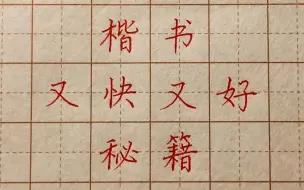 楷书
又快又好
秘籍